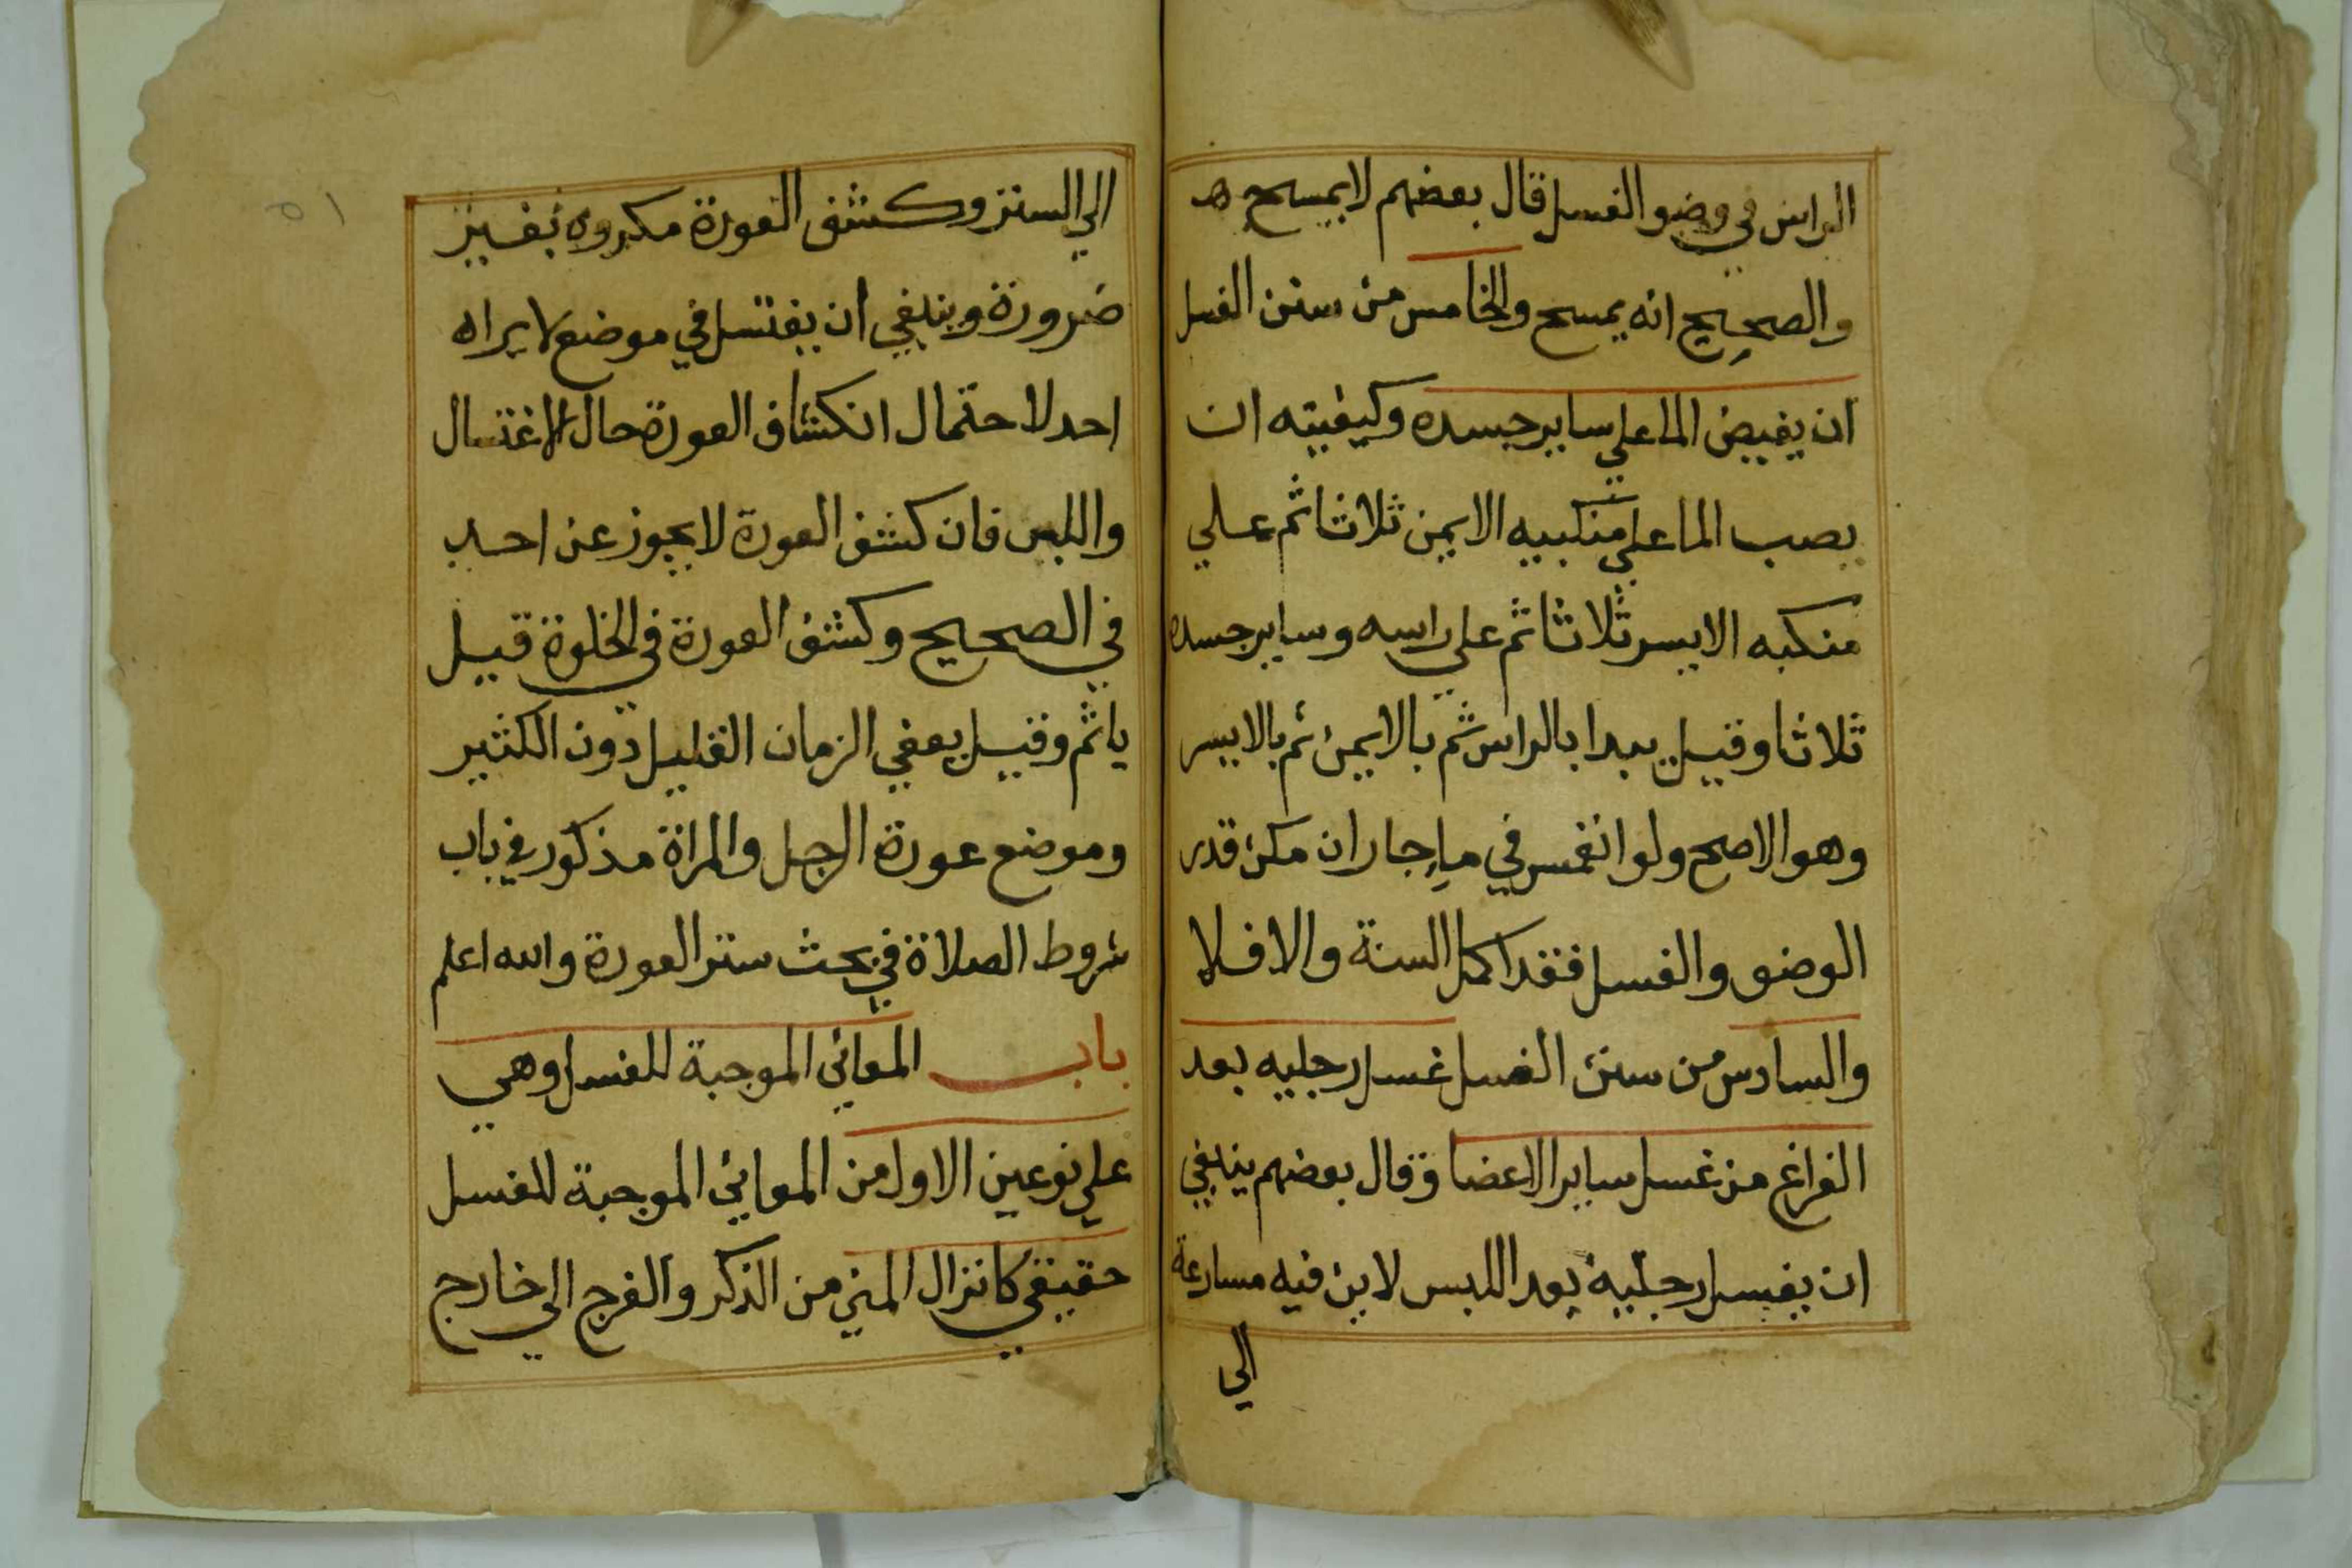 الراس في وضو الغسل قال بعضهم لا يمسح هـ
والصحيح انه يمسح والخامس من سنن الغسل
ان يفيض الما علي ساير جسده وكيفيته ان
يصب الما علي منكبيه الايمن ثلاثا ثم علي
منكبه الايسر ثلاثا ثم علي راسه وساير جسده
ثلاثا وقيل يبدا بالراس ثم بالايمن ثم بالايسر
وهو الاصح ولو انغمس في ماء جار ان مكث قدر
الوضو والغسل فقد اكمل السنة والا فلا
والسادس من سنن الغسل غسل رجليه بعد
الفراغ من غسل ساير الاعضا وقال بعضهم ينبغي
ان يغسل رجليه بعد اللبس لان فيه مسارعة
الي
٥١
الي الستر وكشف العورة مكروه بغير
ضرورة وينبغي ان يغتسل في موضع لا يراه
احد لاحتمال انكشاف العورة حال الاغتسال
واللبس فان كشف العورة لا يجوز عن احد
في الصحيح وكشف العورة في الخلوة قيل
ياثم وقيل يعفي الزمان القليل دون الكثير
وموضع عورة الرجل والمراة مذكور في باب
شروط الصلاة في بحث ستر العورة والله اعلم
باب المعاني الموجبة للغسل وهي
علي نوعين الاول من المعاني الموجبة للغسل
حقيقي كانزال المني من الذكر والفرج الي خارج